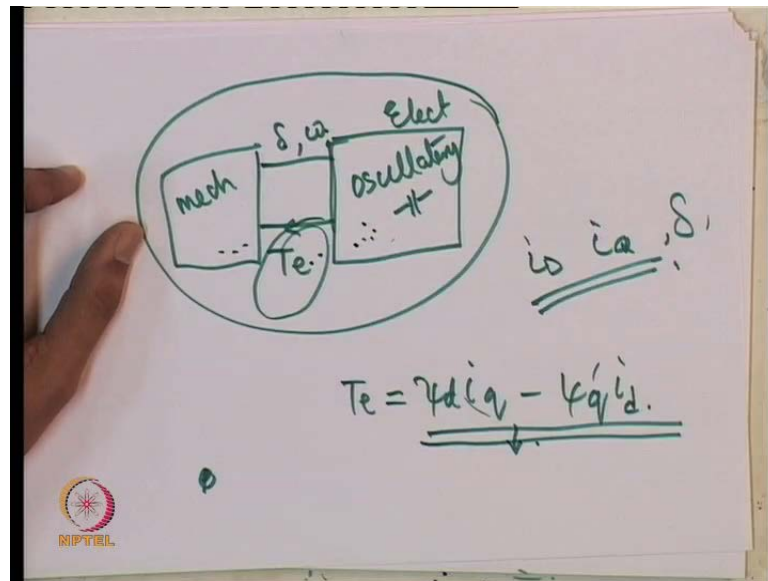 Elect
δ, ω
mech
oscillating
Te
iD iQ, δ,
Te = ψd iq - ψq id.
NPTEL